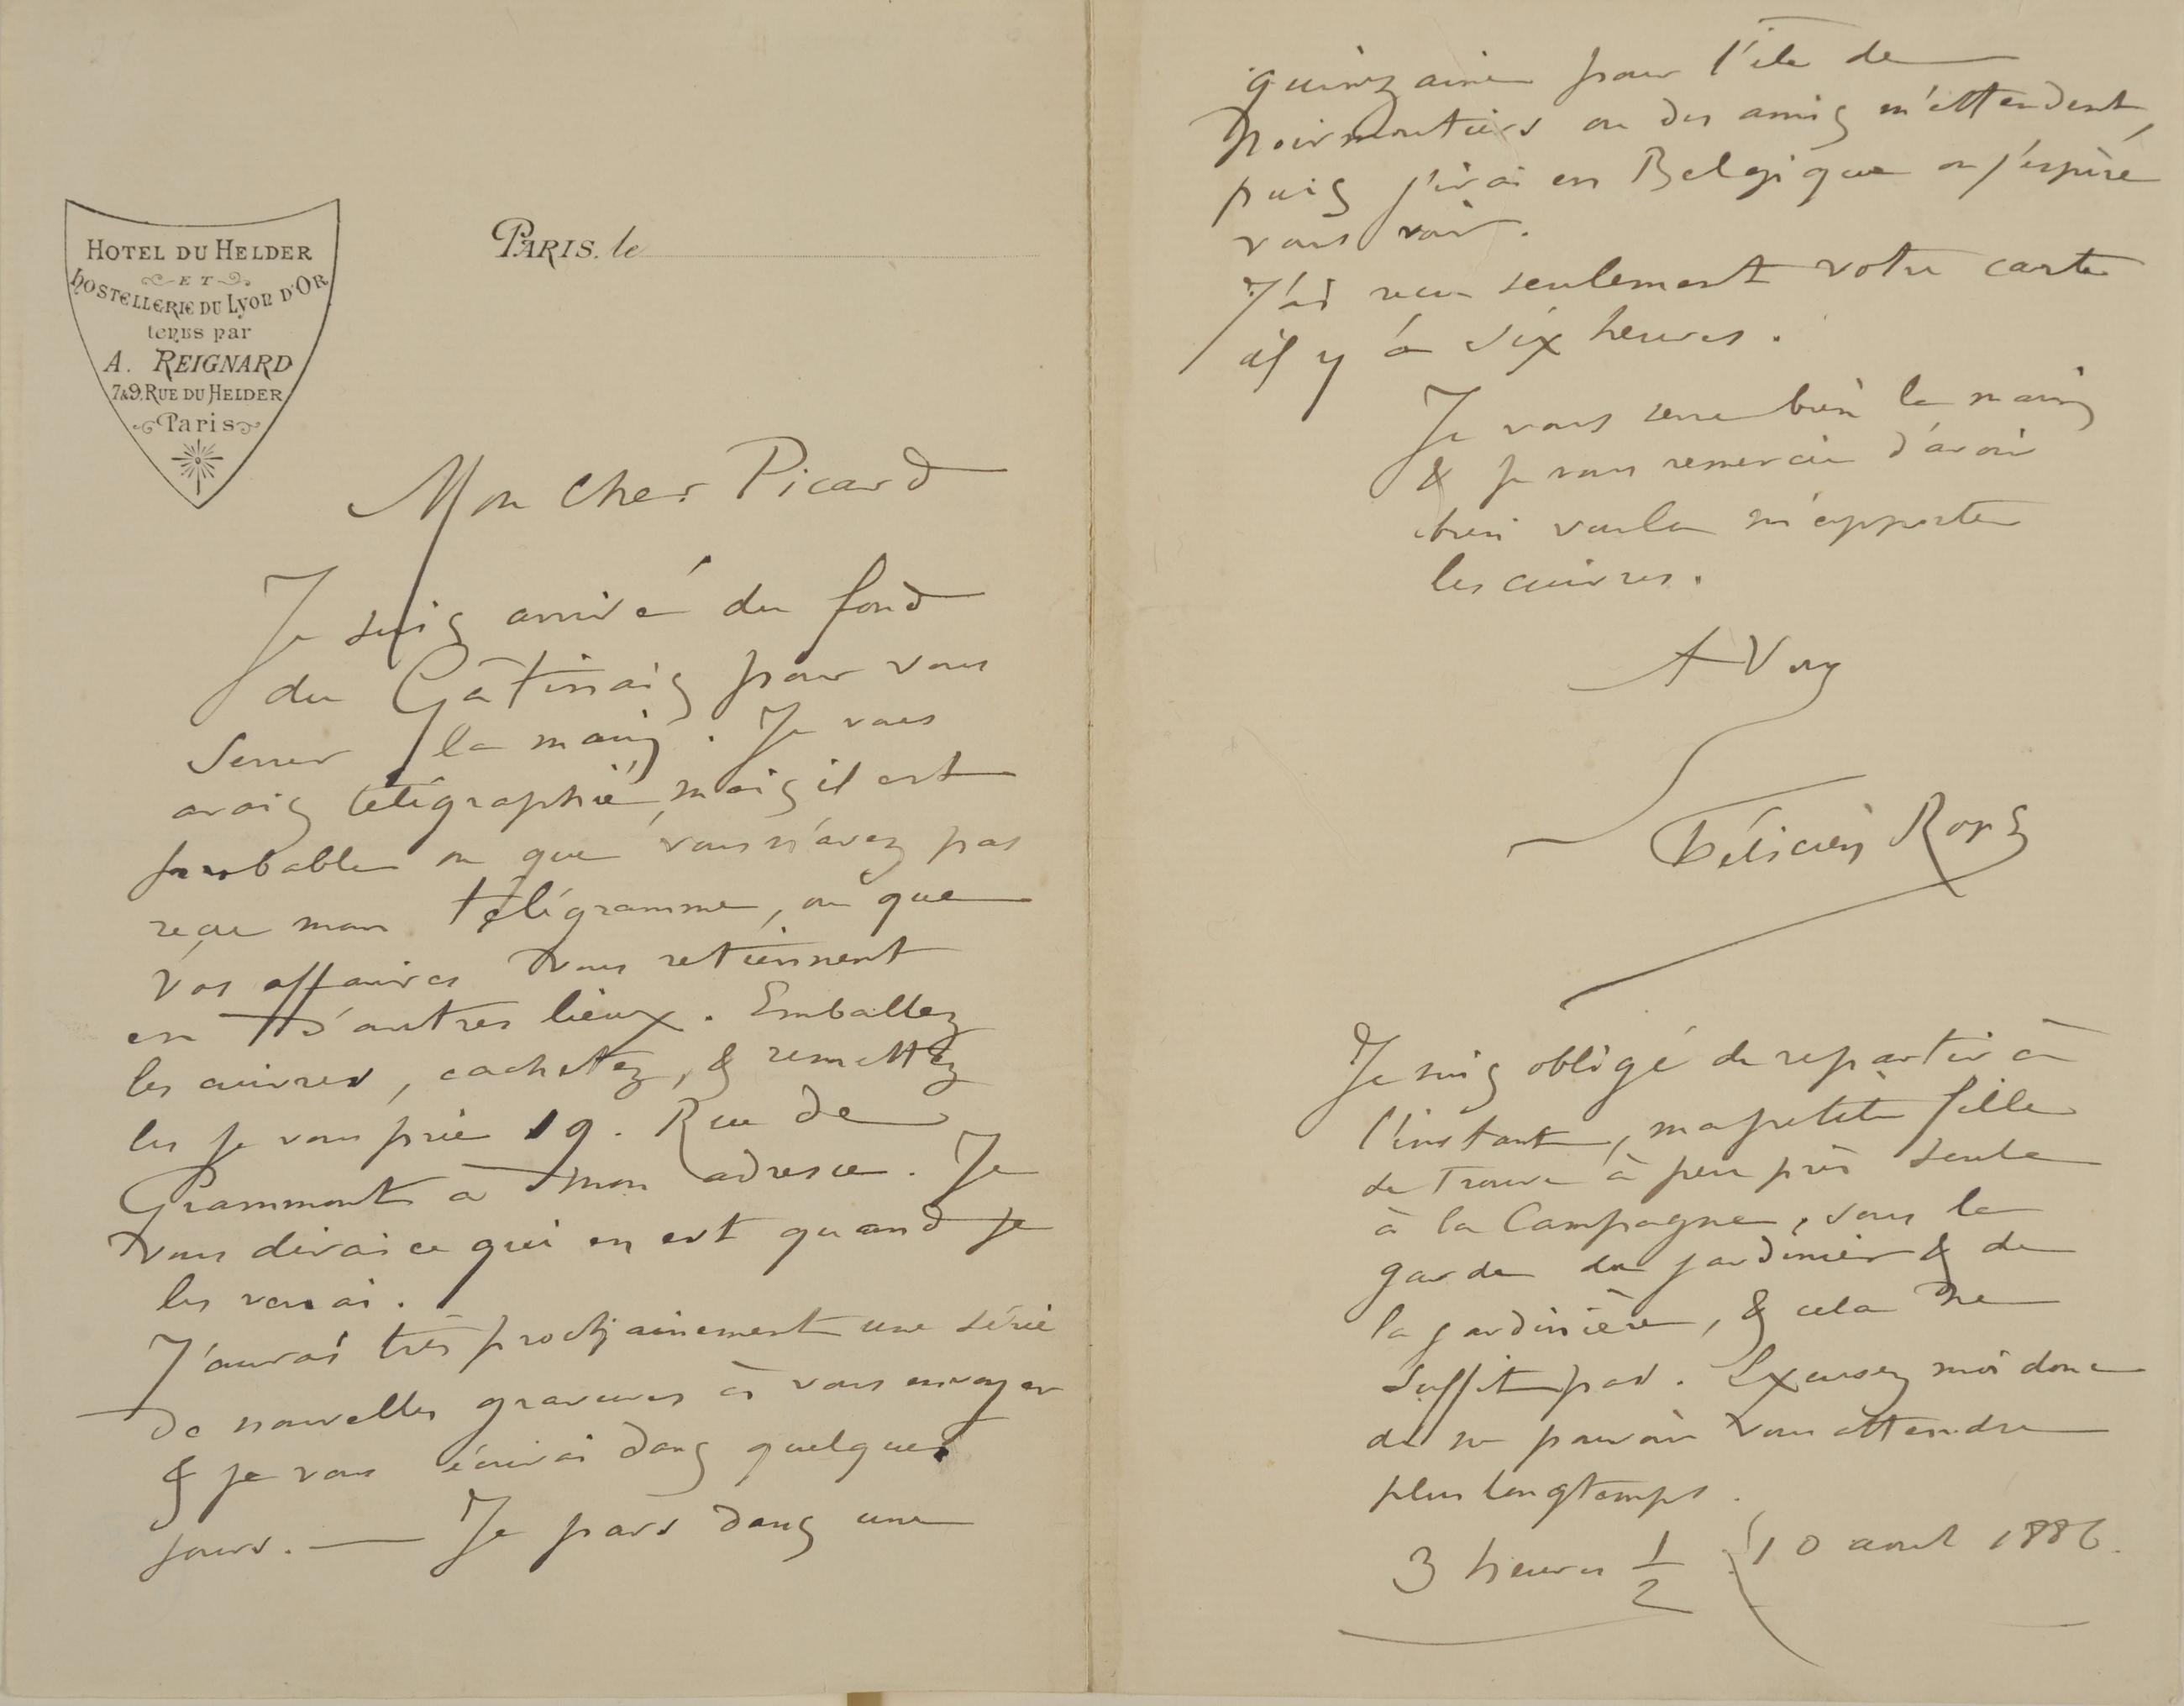 HOTEL DU HELDER
ET
HOSTELLERIE DU LYON D'OR
tenus par
A. REIGNARD
7&9. RUE DU HELDER
Paris
PARIS, le
Mon Cher Picard
Je suis arrivé du fond
du Gâtinais pour vous
serrer la main. Je vous
avais télégraphié, mais il est
probable ou que vous n'avez pas
reçu mon télégramme, ou que
vos affaires vous retiennent
en d'autres lieux. Emballez
les cuivres, cachetez, & remettez
les je vous prie 19. Rue de
Grammont à mon adresse. Je
vous dirai ce qui en est quand je
les verrai.
J'aurai très prochainement une série
de nouvelles gravures à vous envoyer
& je vous écrirai dans quelques
jours. — Je pars dans une
quinzaine pour l'île de
Noirmoutiers ou des amis m'attendent,
puis j'irai en Belgique ou j'espère
vous voir.
J'ai reçu seulement votre carte
il y à six heures.
Je vous serre bien la main
& je vous remercie d'avoir
bien voulu m'apporter
les cuivres.
A Vous
Félicien Rops
Je suis obligé de repartir à
l'instant, ma petite fille
se trouve à peu près seule
à la Campagne, sous la
garde du jardinier & de
la jardinière, & cela ne
suffit pas. Excusez moi donc
de ne pouvoir vous attendre
plus longtemps.
3 heures 1/2 10 aout 1886.